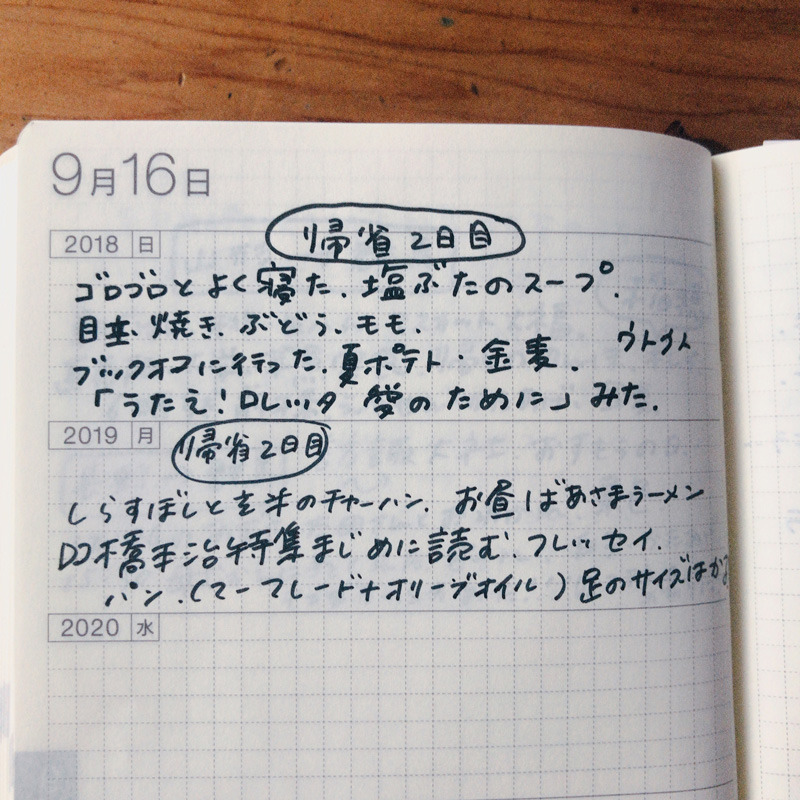 9月16日
2018 日 帰省2日目
ゴロゴロとよく寝た.塩ぶたのスープ.
目玉焼き.ぶどう.モモ.
ウトウト
ブックオフに行った.夏ポテト・金麦.
「うたえ!ロレッタ 愛のために」みた.
2019 月 帰省2日目
しらすぼしと玄米のチャーハン. お昼はあさまラーメン
DJ橋本治特集まじめに読む.フレッセイ.
パン.(マーマレード+オリーブオイル)足のサイズはかる
2020 水